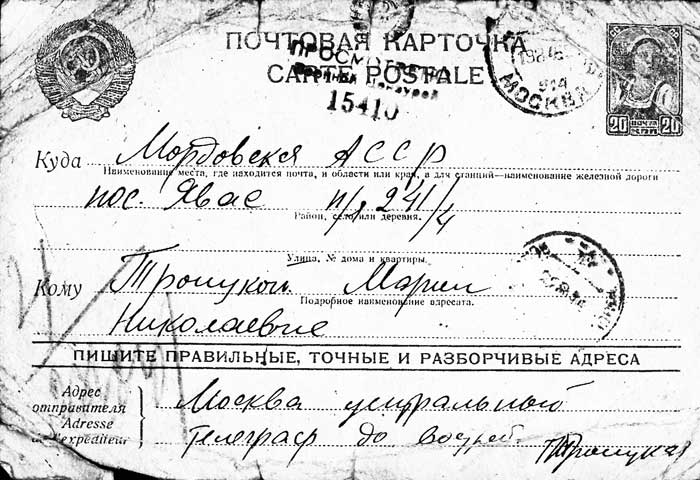 ПОЧТОВАЯ КАРТОЧКА
ПРОСМОТРЕНО
CARTE POSTALE
15410
МОСКВА
20 ПОЧТА 20
Куда Мордовская АССР
Наименование места, где находится почта, и области или края, а для станций—наименование железной дороги
пос. Явас п/я 241/4
Район, село или деревня.
Улица, № дома и квартиры.
Кому Троцкой Марии
Подробное наименование адресата.
Николаевне
ПИШИТЕ ПРАВИЛЬНЫЕ, ТОЧНЫЕ И РАЗБОРЧИВЫЕ АДРЕСА
Адрес
отправителя
Adresse
de l'expéditeur
Москва центральный
телеграф до востреб. Троцкая